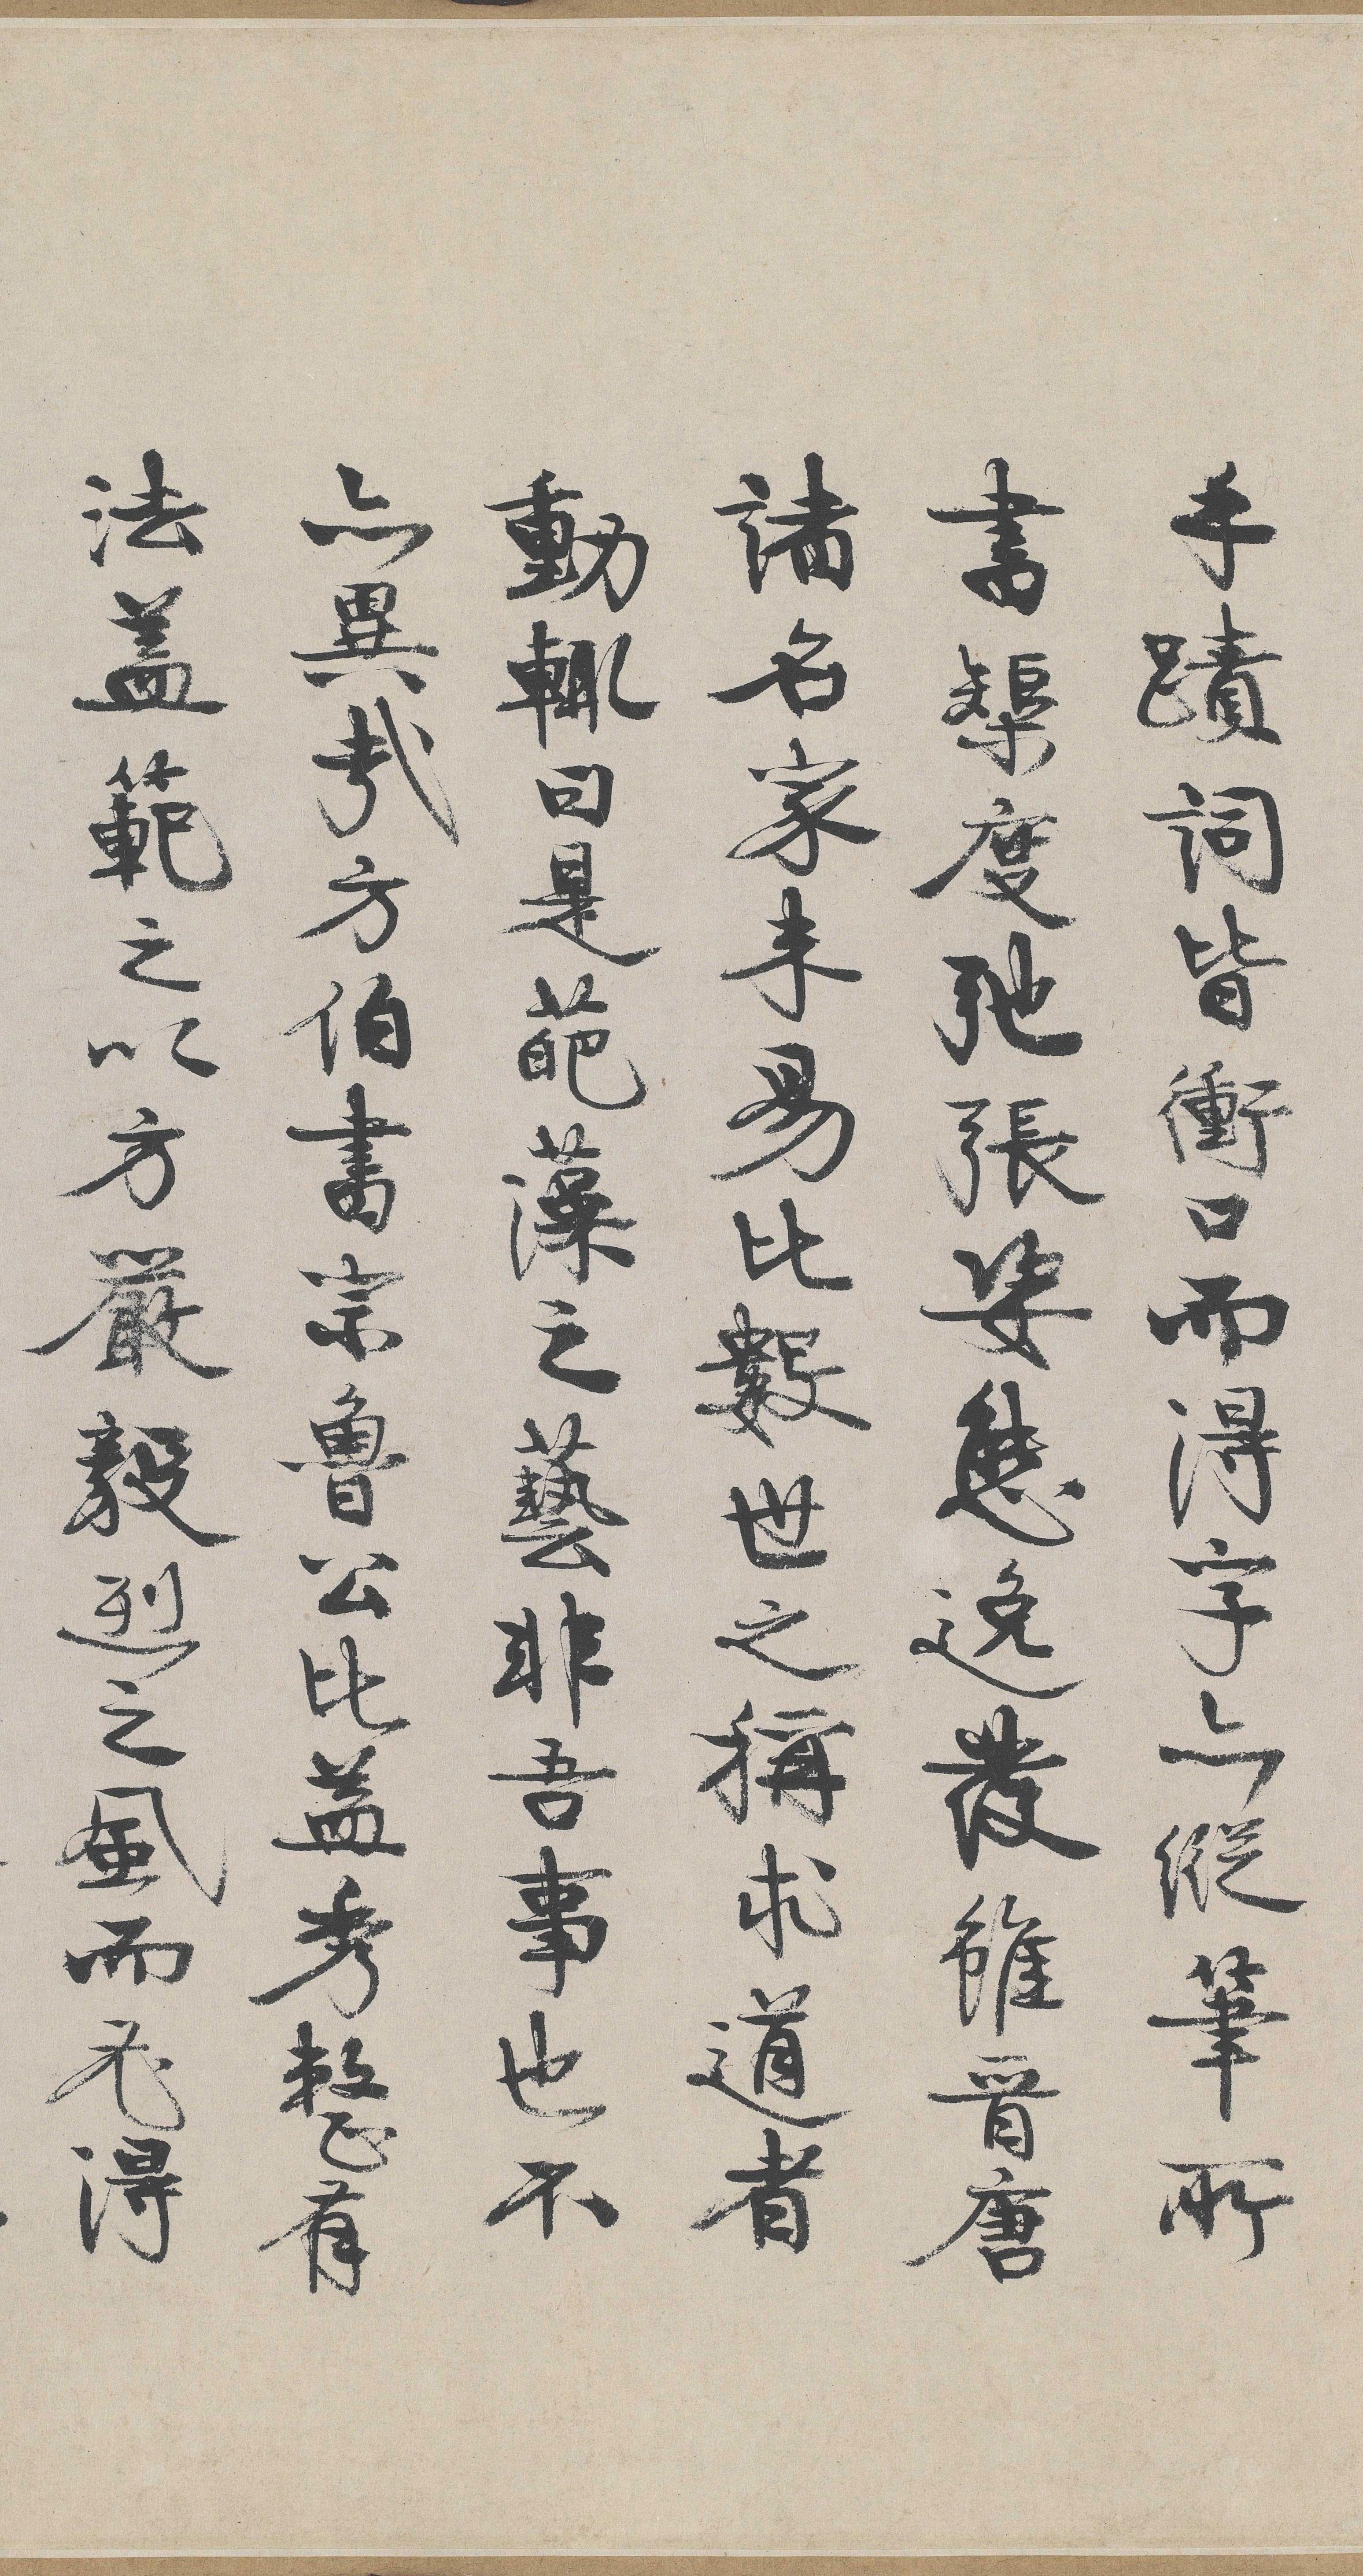 手蹟詞皆衝口而得字亦縱筆所
書榘度弛張姿態逸發雖晉唐
諸名家未易比數世之稱求道者
動輒曰是葩藻之藝非吾事也不
亦異哉方伯書宗魯公比益秀整有
法蓋範之以方嚴毅烈之風而克得